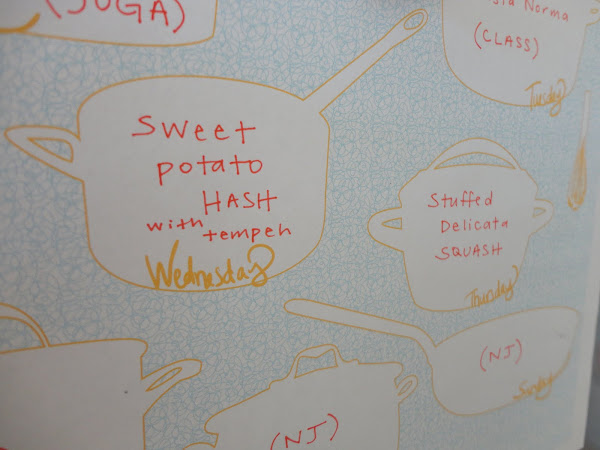 Norma
(CLASS)
Tuesday
Sweet
potato
HASH
with tempeh
Wednesday
Stuffed
Delicata
SQUASH
Thursday
(NJ)
Sunday
(NJ)